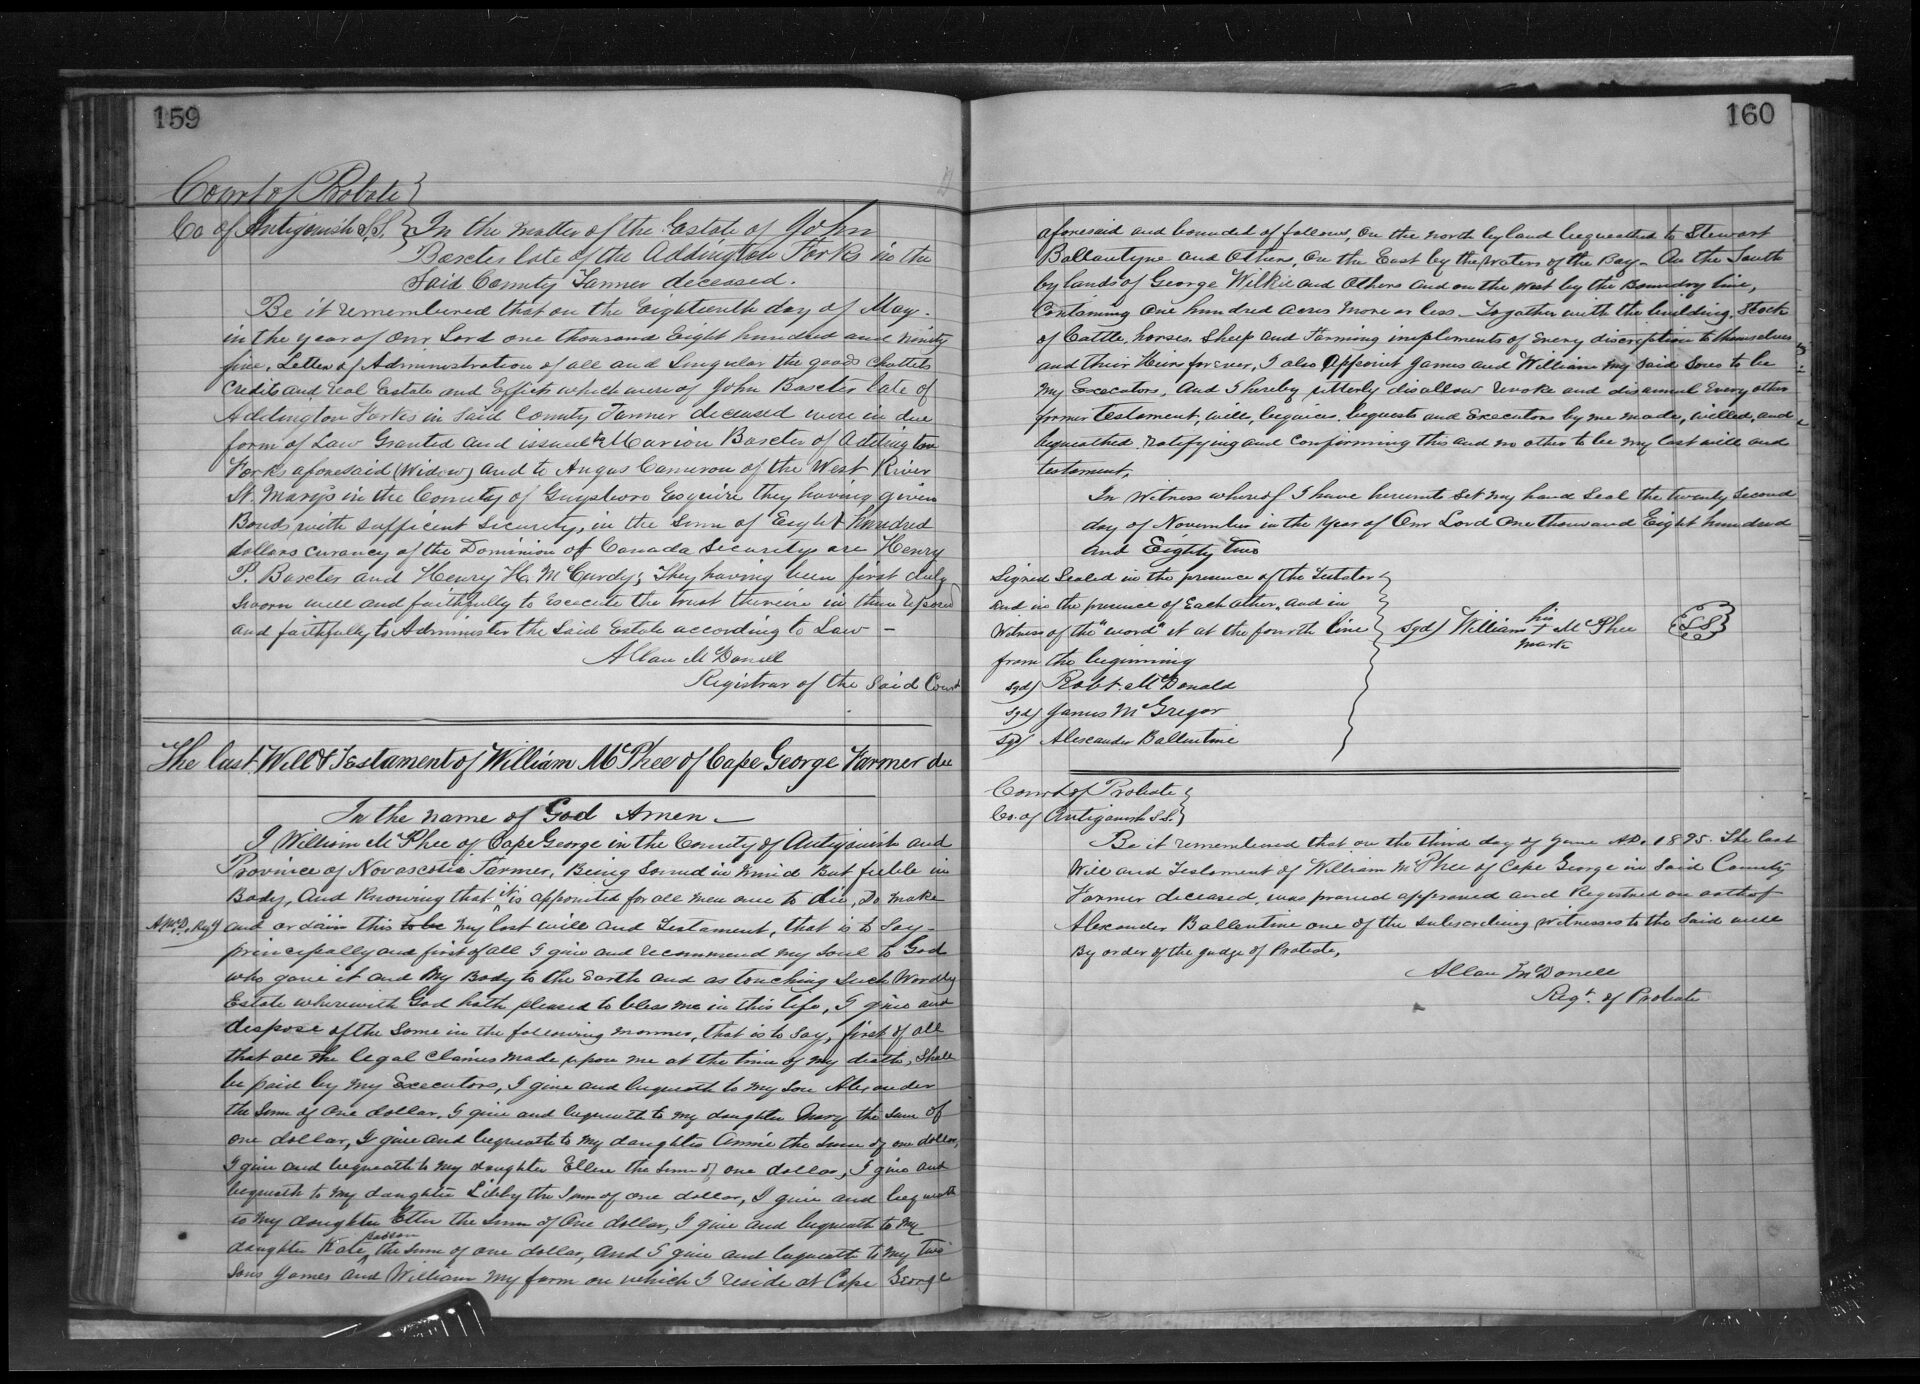 159
Court of Probate
Co of Antigonish S.S. In the matter of the Estate of John
Baxter late of the Addington Forks in the
Said County Farmer deceased.
Be it remembered that on the Eighteenth day of May
in the year of our Lord one thousand Eight hundred and ninety
five, Letters of Administration of all and Singular the goods Chattels
Credits and real Estate and Effects which were of John Baxter late of
Addington Forks in Said County Farmer deceased were in due
form of Law Granted and issued to Marion Baxter of Addington
Forks aforesaid (Widow) and to Angus Cameron of the West River
St. Marys in the County of Guysboro Esquire they having given
Bonds with sufficent Security, in the Sum of Eight hundred
dollars curancy of the Dominion of Canada Securitys are Henry
P. Baxter and Henry H. McCurdy; They having been first duly
Sworn well and faithfully to Execute the trust therein in them reposed
and faithfully to Administer the Said Estate according to Law —
Allan McDonell
Registrar of the Said Court
The last Will & Testament of William McPhee of Cape George Farmer dec
In the name of God Amen —
I William McPhee of Cape George in the County of Antigonish and
Province of Novascotia Farmer, Being Sound in mind But feeble in
Body, And Knowing that it is appointed for all men once to die, Do make
A McD. Regr and ordain this to be my last will and Testament, that is to Say—
principally and first of all I give and recommend my Soul to God
who gave it and My Body to the Earth and as touching Such Wordly
Estate wherewith God hath pleased to bless me in this life, I give and
dispose of the Same in the following manner, that is to Say, first of all
that all the legal claims made upon me at the time of my death, Shall
be paid by my Executors, I give and bequeath to my Son Alexander
the Sum of One dollar, I give and bequeath to my daughter Mary the Sum of
one dollar, I give and bequeath to my daughter Annie the Sum of one dollar,
I give and bequeath to my daughter Ellen the Sum of one dollar, I give and
bequeath to my daughter Libby the Sum of one dollar, I give and bequeath
to my daughter Etta the Sum of One dollar, I give and bequeath to My
daughter Kate the Sum of one dollar, And I give and bequeath to My two
Sons James and William my farm on which I reside at Cape George
160
aforesaid and bounded of follows, On the north by land bequeathed to Stewart
Ballantyne and Others, On the East by the waters of the Bay — On the South
by lands of George Wilkie and Others and on the west by the Boundry line,
Containing One hundred Acres More or less — Together with the building, Stock
of Cattle, horses, Sheep and Farming implements of Every discription to themselves
and their Heirs forever, I also Appoint James and William my Said Sons to be
My Executors, And I hereby utterly disallow revoke and disannul Every other
former testament, will, legacies, bequests and Executors by me made, willed, and
bequeathed, ratifying and confirming this and no other to be my last will and
testament,
In Witness whereof I have hereunto Set my hand Seal the twenty Second
day of November in the Year of Our Lord One thousand Eight hundred
and Eighty Two
Signed Sealed in the presence of the Testator
And in the presence of Each other, and in
Witness of the "word" it at the fourth line
from the beginning
Sgd) William his x mark McPhee LS
Sgd) Robt. McDonald
Sgd) James McGregor
Sgd) Alexander Ballentine
Court of Probate
Co. of Antigonish S.S.
Be it remembered that on the third day of June A.D. 1895. The last
Will and Testament of William McPhee of Cape George in Said County
Farmer deceased, was proved approved and Registered on oath of
Alexander Ballentine one of the subscribing Witnesses to the Said will
By order of the Judge of Probate,
Allan McDonell
Regt. of Probate